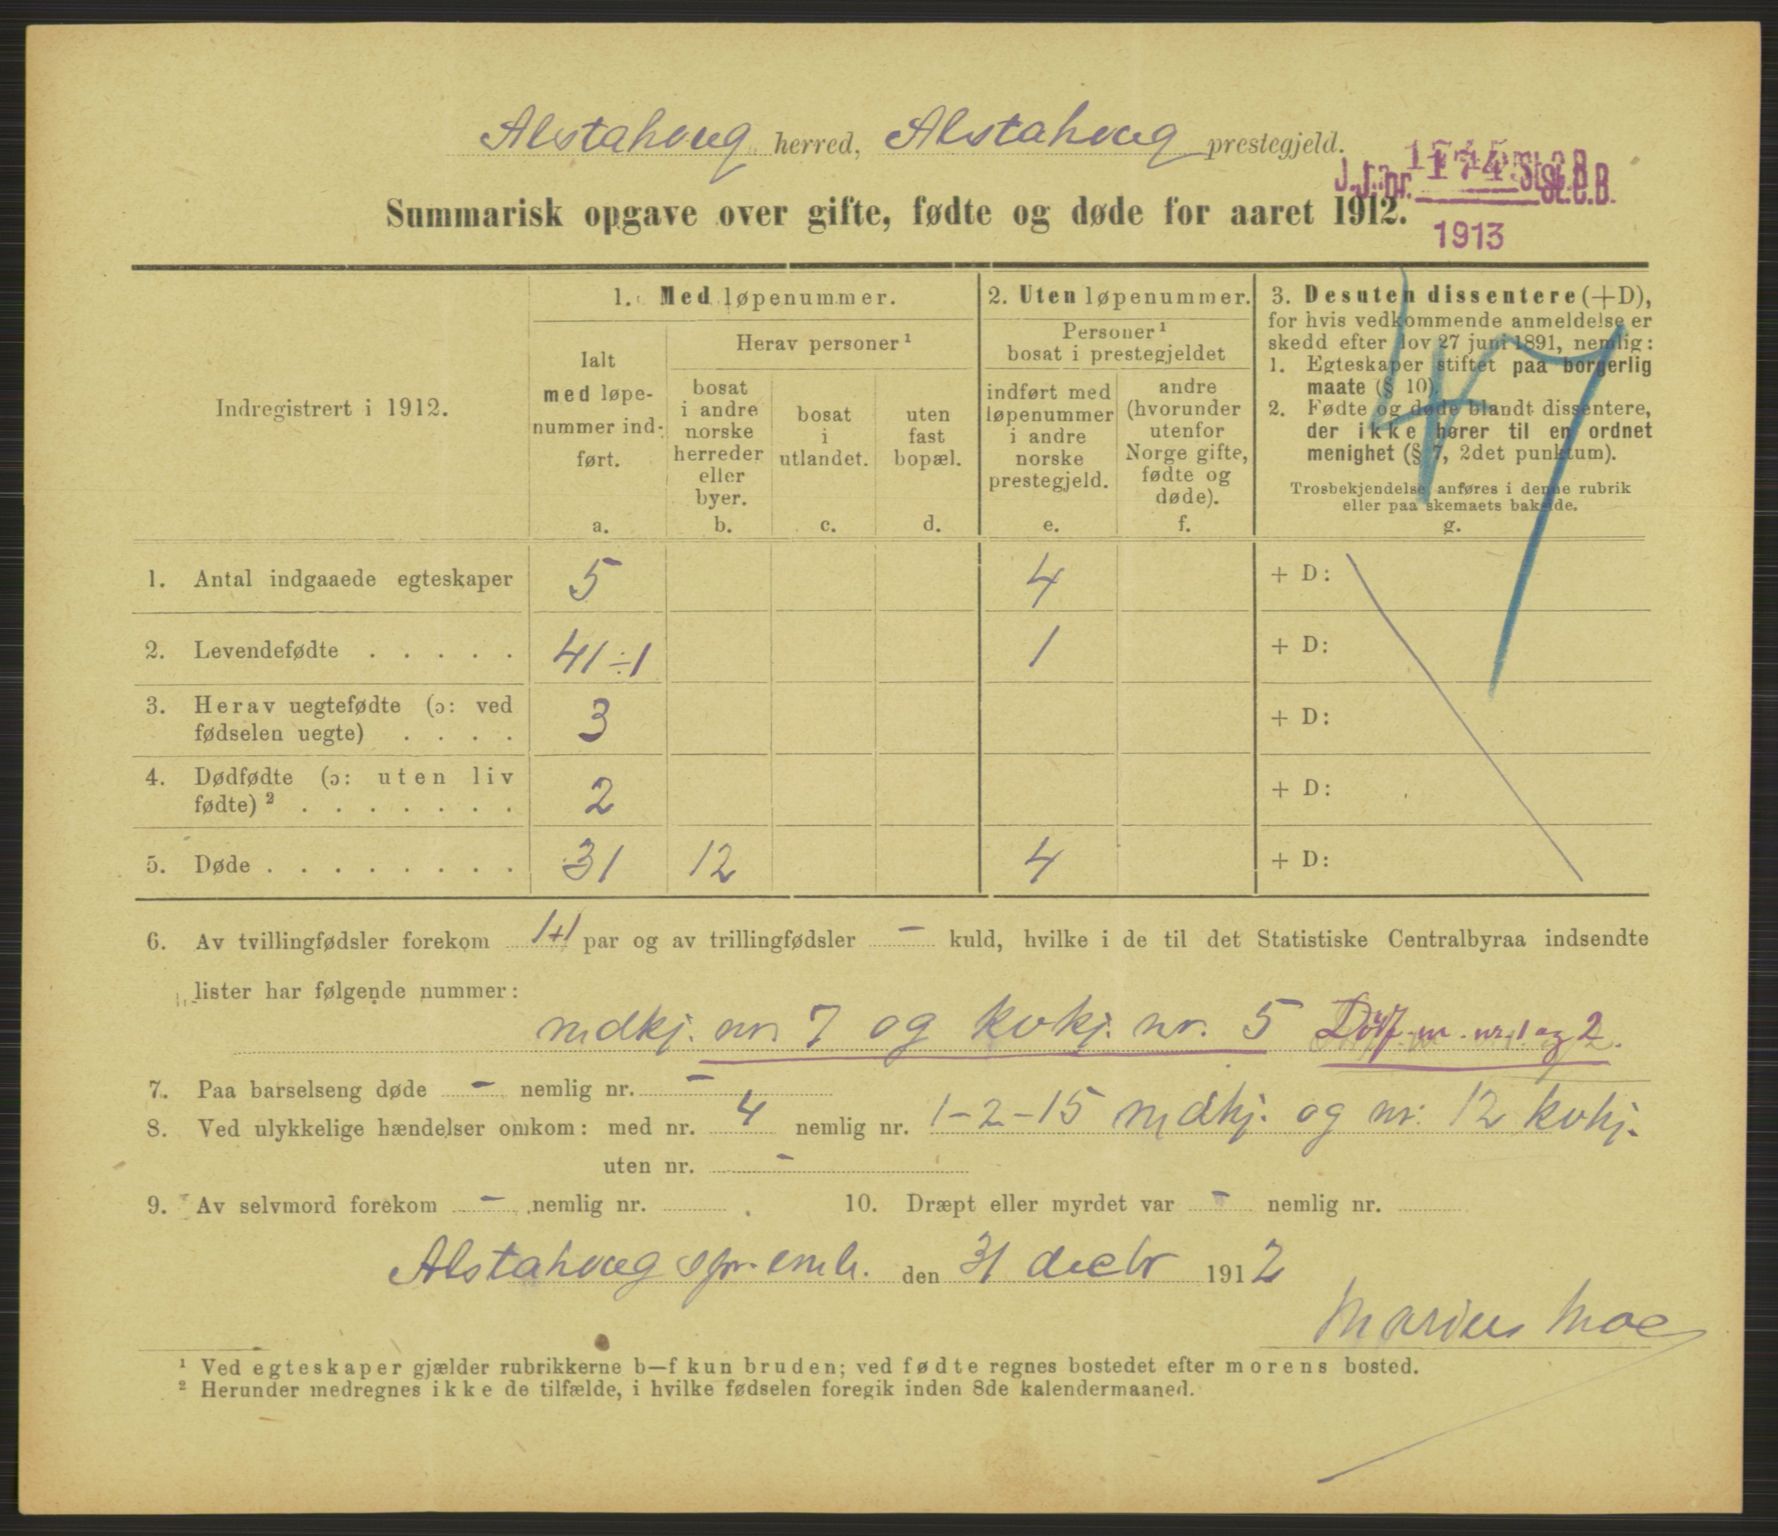 Alstahoug herred, Alstahoug prestegjeld.
J.nr. 1745 St.C.B.
1913
Summarisk opgave over gifte, fødte og døde for aaret 1912.
47
Indregistrert i 1912.
1. Med løpenummer.
Ialt med løpenummer indført.
a.
Herav personer¹
bosat i andre norske herreder eller byer.
b.
bosat i utlandet.
c.
uten fast bopæl.
d.
2. Uten løpenummer.
Personer¹ bosat i prestegjeldet
indført med løpenummer i andre norske prestegjeld.
e.
andre (hvorunder utenfor Norge gifte, fødte og døde).
f.
3. Desuten dissentere (+D),
for hvis vedkommende anmeldelse er
skedd efter lov 27 juni 1891, nemlig:
1. Egteskaper stiftet paa borgerlig
maate (§ 10).
2. Fødte og døde blandt dissentere,
der ikke hører til en ordnet
menighet (§ 7, 2det punktum).
Trosbekjendelse anføres i denne rubrik
eller paa skemaets bakside.
g.
1. Antal indgaaede egteskaper 5 4 + D:
2. Levendefødte . . . . . 41÷1 1 + D:
3. Herav uegtefødte (ɔ: ved
fødselen uegte) . . . . 3 + D:
4. Dødfødte (ɔ: uten liv
fødte)² . . . . . . . 2 + D:
5. Døde . . . . . . . . 31 12 4 + D:
6. Av tvillingfødsler forekom 1+1 par og av trillingfødsler – kuld, hvilke i de til det Statistiske Centralbyraa indsendte
lister har følgende nummer:
mdkj. nr. 7 og kvkj. nr. 5 Dødf. m. nr. 1 og 2.
7. Paa barselseng døde – nemlig nr. –
8. Ved ulykkelige hændelser omkom: med nr. 4 nemlig nr. 1-2-15 mdkj. og nr. 12 kvkj.
uten nr. –
9. Av selvmord forekom – nemlig nr.
10. Dræpt eller myrdet var – nemlig nr.
Alstahoug spr.emb. den 31 decbr 1912
Marius Moe
¹ Ved egteskaper gjælder rubrikkerne b—f kun bruden; ved fødte regnes bostedet efter morens bosted.
² Herunder medregnes ikke de tilfælde, i hvilke fødselen foregik inden 8de kalendermaaned.